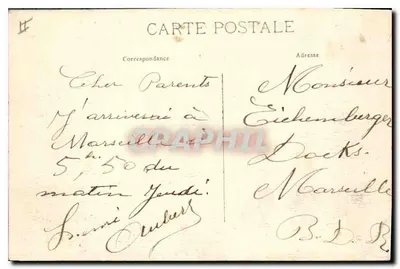 CARTE POSTALE
Correspondance
Adresse
Cher Parents
J'arriverai à
Marseille à
5h,50 du
matin Jeudi.
Henri
Aubert
Monsieur
Eichemberger
Docks
Marseille
B.D.R